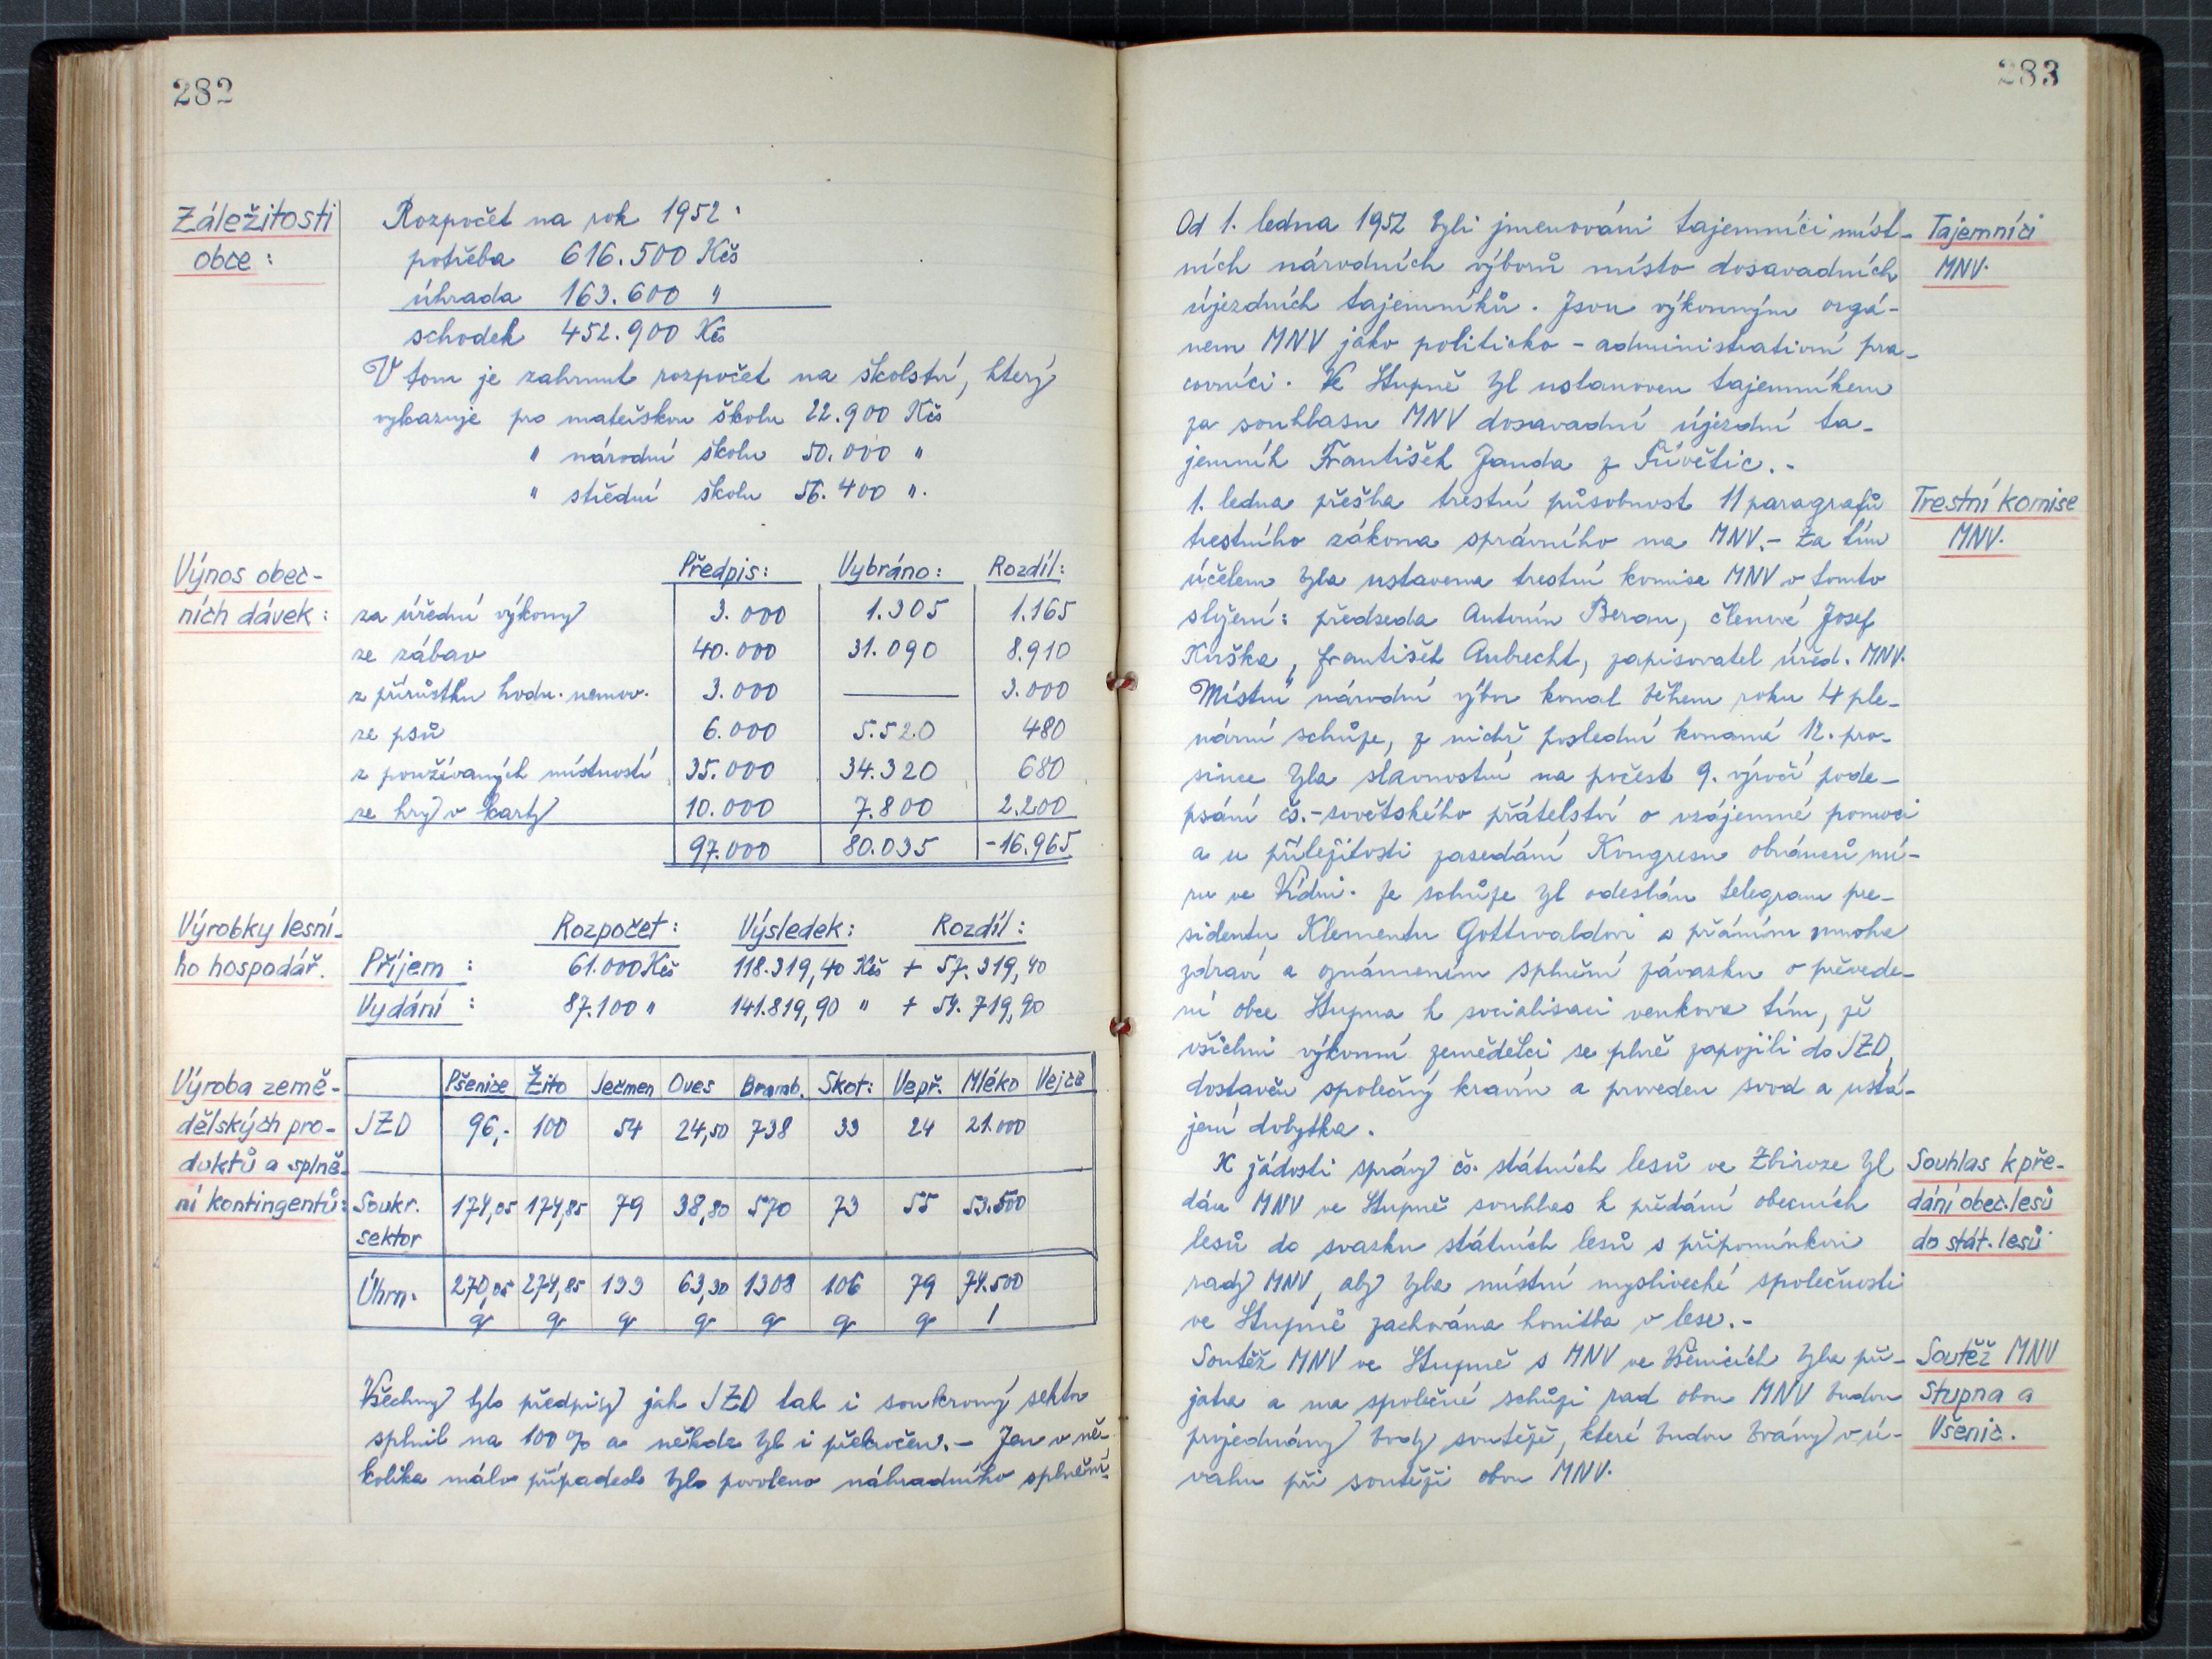 282
Záležitosti
obce:
Rozpočet na rok 1952:
potřeba 616.500 Kčs
úhrada 163.600 "
schodek 452.900 Kčs
V tom je zahrnut rozpočet na školství, který
vykazuje pro mateřskou školu 22.900 Kčs
" národní školu 50.000 "
" střední školu 56.400 ".
Výnos obec-
ních dávek:
Předpis: Vybráno: Rozdíl:
za úřední výkony 3.000 1.305 1.165
ze zábav 40.000 31.090 8.910
z přírůstku hodn. nemov. 3.000 — 3.000
ze psů 6.000 5.520 480
z používaných místností 35.000 34.320 680
ze hry v karty 10.000 7.800 2.200
97.000 80.035 -16.965
Výrobky lesní-
ho hospodář.
Rozpočet: Výsledek: Rozdíl:
Příjem: 61.000 Kčs 118.319,40 Kčs + 57.319,40
Vydání: 87.100 " 141.819,90 " + 54.719,90
Výroba země-
dělských pro-
duktů a splně-
ní kontingentů:
Pšenice Žito Ječmen Oves Bramb. Skot: Vepř. Mléko Vejce
JZD 96,- 100 54 24,50 738 33 24 21.000
Soukr. 174,05 174,85 79 38,80 570 73 55 53.500
sektor
Úhrn. 270,05 274,85 133 63,30 1308 106 79 74.500
q q q q q q q l
Všechny tyto předpisy jak JZD tak i soukromý sektor
splnil na 100 % a někde byl i překročen.- Jen v ně-
kolika málo případech bylo povoleno náhradního splnění.
283
Od 1. ledna 1952 byli jmenováni tajemníci míst-
ních národních výborů místo dosavadních
újezdních tajemníků. Jsou výkonným orgá-
nem MNV jako politicko-administrativní pra-
covníci. Ve Stupně byl ustanoven tajemníkem
za souhlasu MNV dosavadní újezdní ta-
jemník František Janda z Přívětic.-
Tajemníci
MNV.
1. ledna přešla trestní působnost 11 paragrafů
trestního zákona správního na MNV.- Za tím
účelem byla ustavena trestní komise MNV v tomto
složení: předseda Antonín Beran, členové Josef
Kůška, František Aubrecht, zapisovatel úřed. MNV.
Trestní komise
MNV.
Místní národní výbor konal během roku 4 ple-
nární schůze, z nichž poslední konaná 12. pro-
since byla slavnostní na počest 9. výročí pode-
psání čs.-sovětského přátelství o vzájemné pomoci
a u příležitosti zasedání Kongresu obránců mí-
ru ve Vídni. Ze schůze byl odeslán telegram pre-
sidentu Klementu Gottwaldovi s přáním mnoha
zdraví a oznámením splnění závazku o převede-
ní obce Stupna k socialisaci venkova tím, že
všichni výkonní zemědělci se plně zapojili do JZD,
dostavěn společný kravín a proveden svod a ustá-
jení dobytka.
K žádosti správy čs. státních lesů ve Zbiroze byl
dán MNV ve Stupně souhlas k předání obecních
lesů do svazku státních lesů s připomínkou
rady MNV, aby byla místní myslivecké společnosti
ve Stupně zachována honitba v lese.-
Souhlas k pře-
dání obec.lesů
do stát.lesů
Soutěž MNV ve Stupně s MNV ve Všenicích byla při-
jata a na společné schůzi rad obou MNV budou
projednány body soutěže, které budou brány v ú-
vahu při soutěži obou MNV.
Soutěž MNV
Stupna a
Všenic.